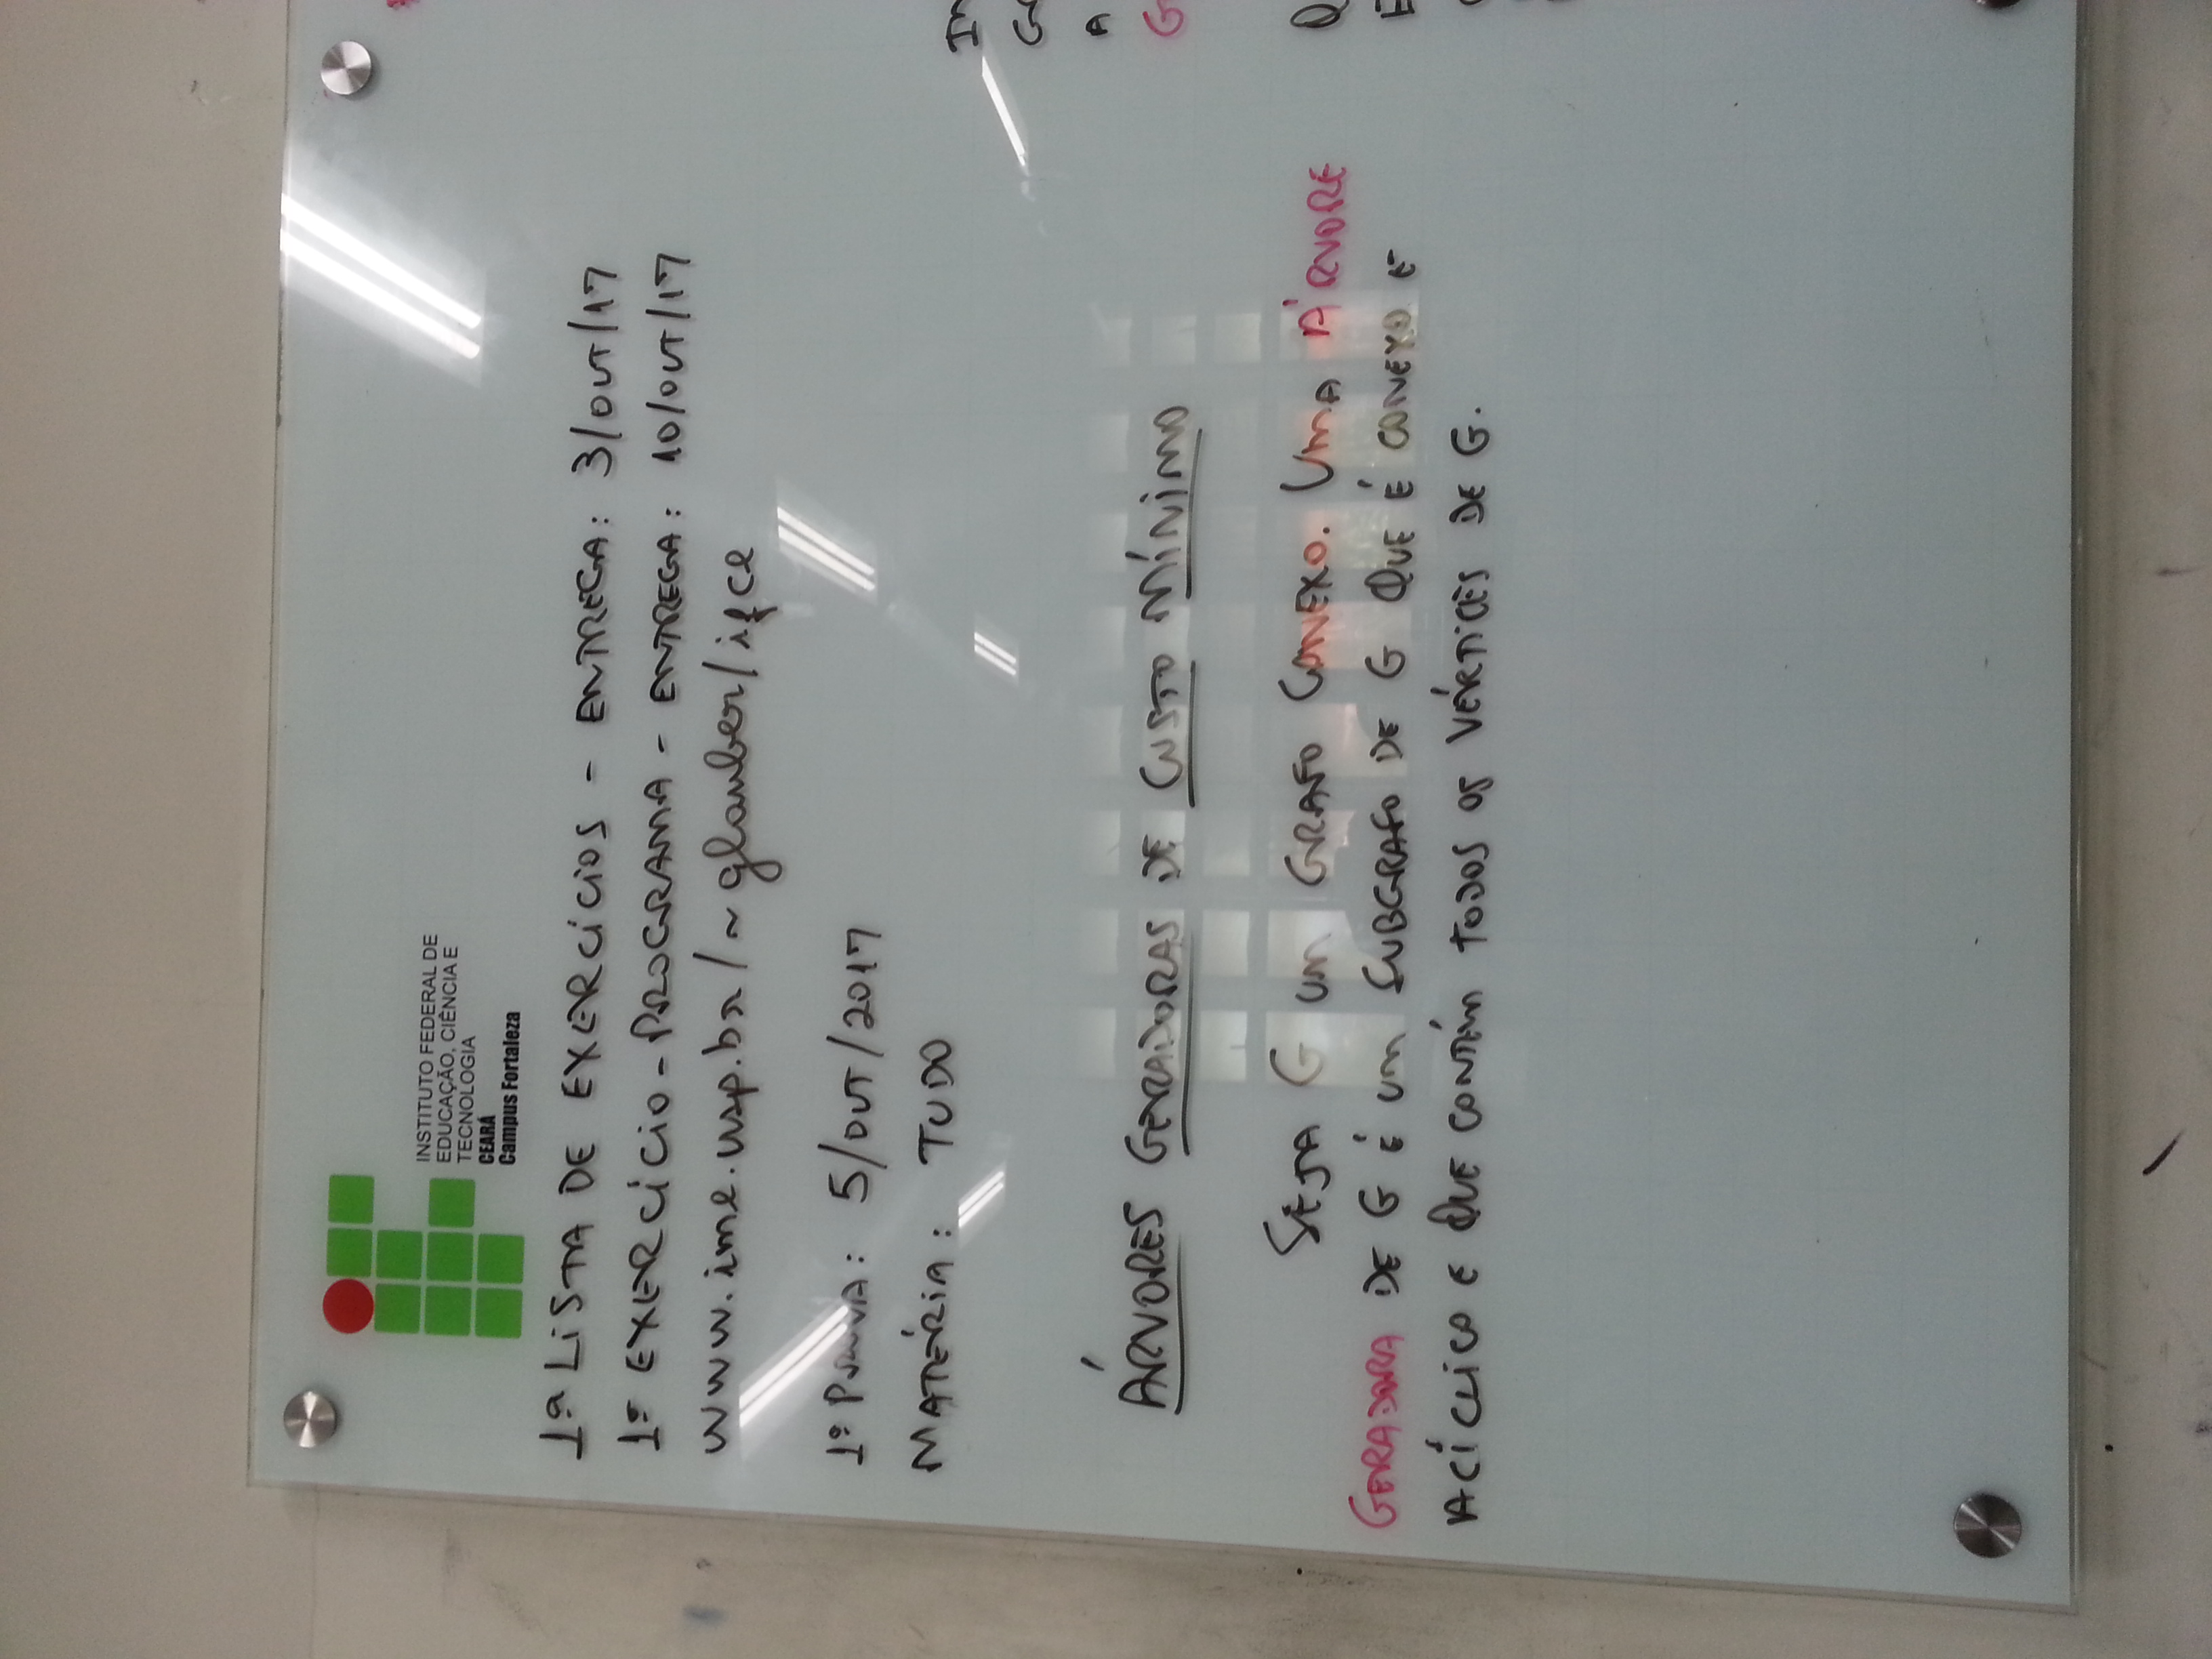 INSTITUTO FEDERAL DE
EDUCAÇÃO, CIÊNCIA E
TECNOLOGIA
CEARÁ
Campus Fortaleza
1ª LISTA DE EXERCÍCIOS - ENTREGA: 3/OUT/17
1º EXERCÍCIO-PROGRAMA - ENTREGA: 10/OUT/17
www.ime.usp.br/~glauber/ifce
1ª PROVA: 5/OUT/2017
MATÉRIA: TUDO
ÁRVORES GERADORAS DE CUSTO MÍNIMO
SEJA G UM GRAFO CONEXO. UMA ÁRVORE
GERADORA DE G É UM SUBGRAFO DE G QUE É CONEXO E
ACÍCLICO E QUE CONTÉM TODOS OS VÉRTICES DE G.